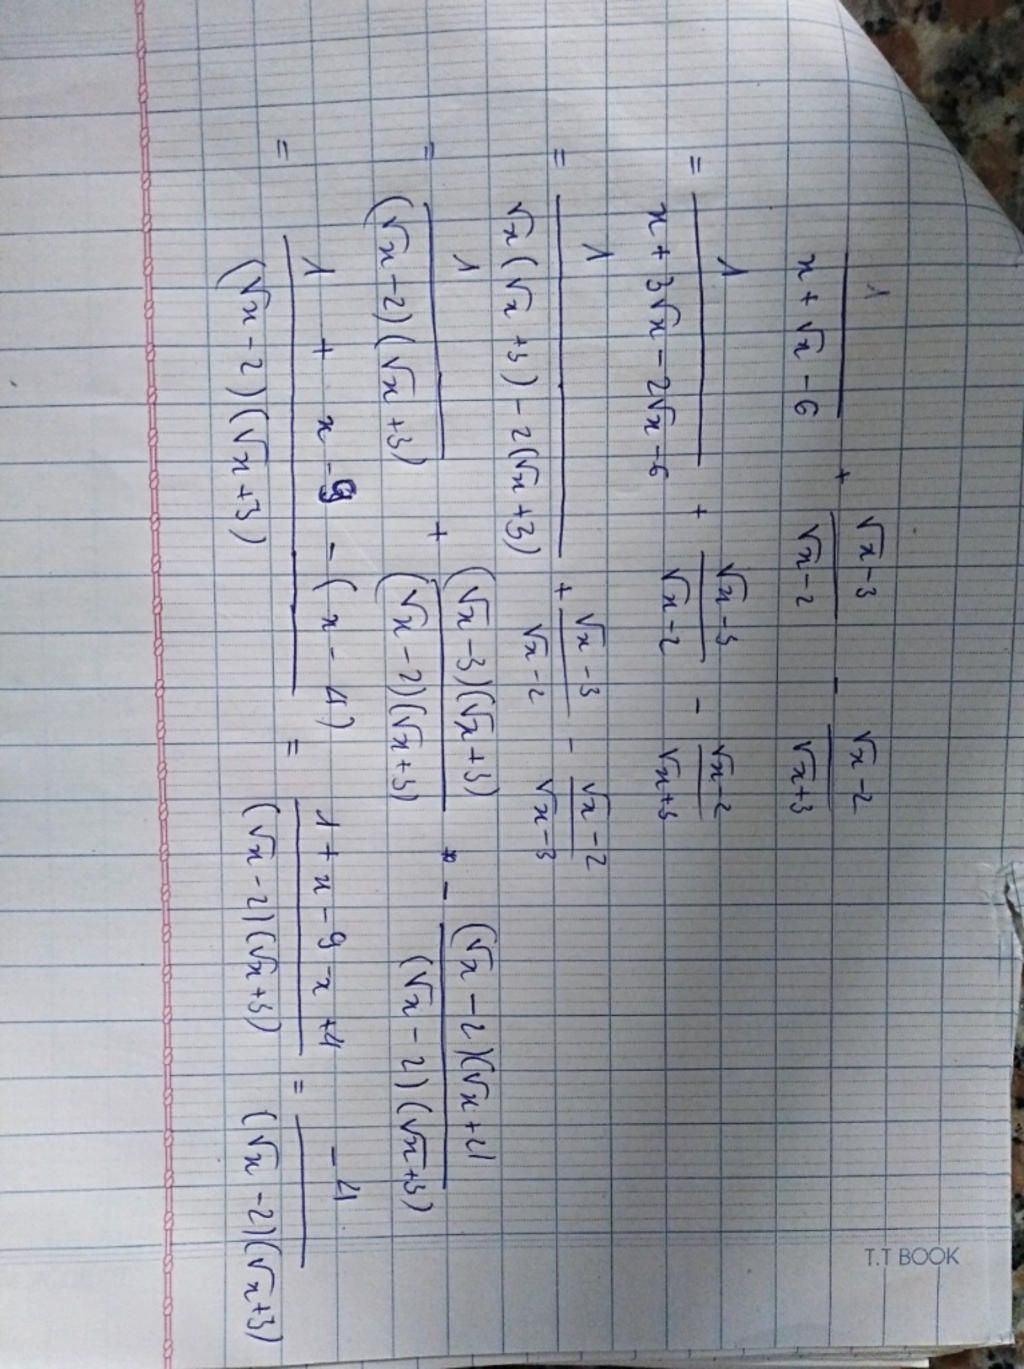 T.T BOOK
1/(x + √x - 6) + (√x - 3)/(√x - 2) - (√x - 2)/(√x + 3)
= 1/(x + 3√x - 2√x - 6) + (√x - 3)/(√x - 2) - (√x - 2)/(√x + 3)
= 1/(√x(√x + 3) - 2(√x + 3)) + (√x - 3)/(√x - 2) - (√x - 2)/(√x - 3)
= 1/((√x - 2)(√x + 3)) + ((√x - 3)(√x + 3))/((√x - 2)(√x + 3)) - ((√x - 2)(√x + 2)/((√x - 2)(√x + 3))
= (1 + x - 9 - (x - 4))/((√x - 2)(√x + 3)) = (1 + x - 9 - x + 4)/((√x - 2)(√x + 3)) = -4/((√x - 2)(√x + 3))